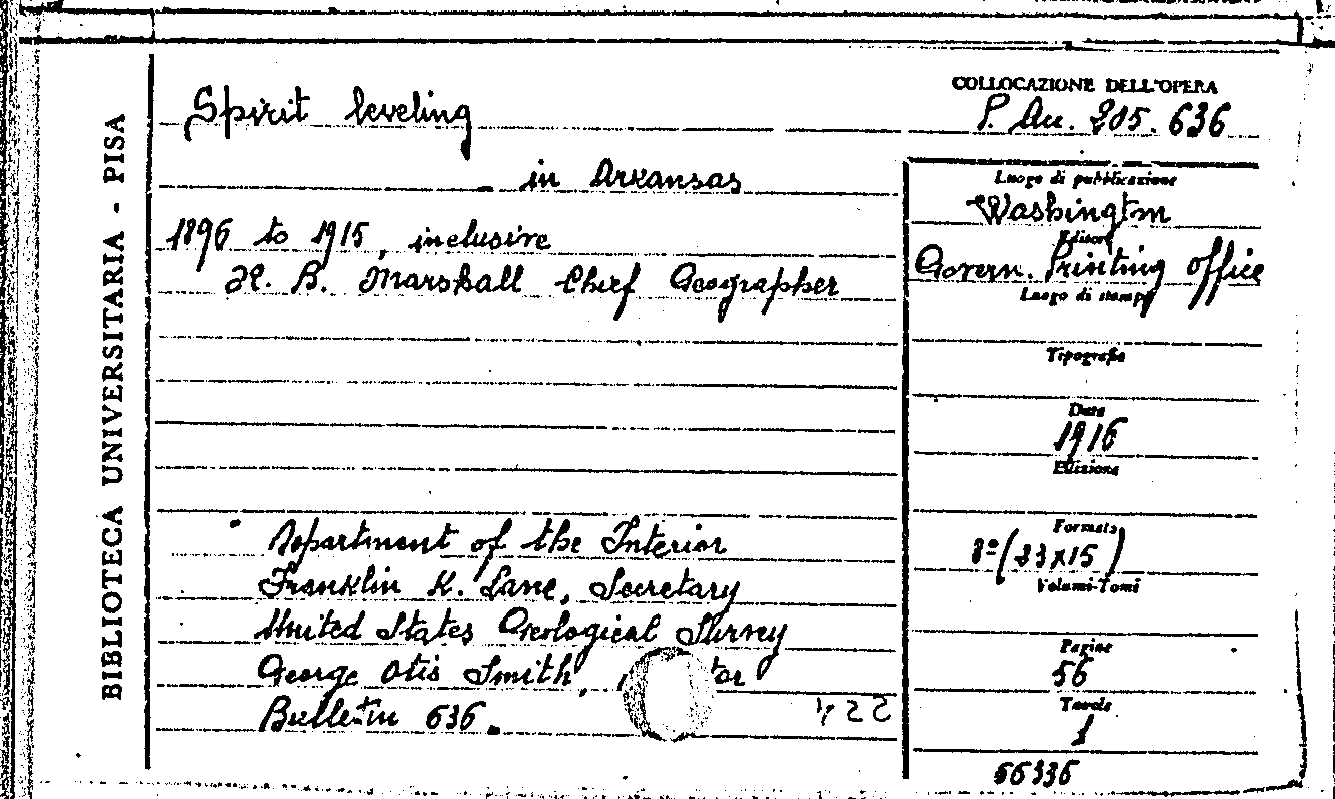 BIBLIOTECA UNIVERSITARIA - PISA
Spirit leveling
in Arkansas
1896 to 1915, inclusive
R. B. Marshall Chief Geographer
Department of the Interior
Franklin K. Lane, Secretary
United States Geological Survey
George Otis Smith,
Bulletin 636.
COLLOCAZIONE DELL'OPERA
P. Au. 205. 636
Luogo di pubblicazione
Washington
Editore
Govern. Printing office
Luogo di stampa
Tipografia
Data
1916
Edizione
Formato
8º (23x15)
Volumi-Tomi
Pagine
56
Tavole
1
56336